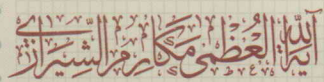 آية الله العظمى مكارم الشيرازي